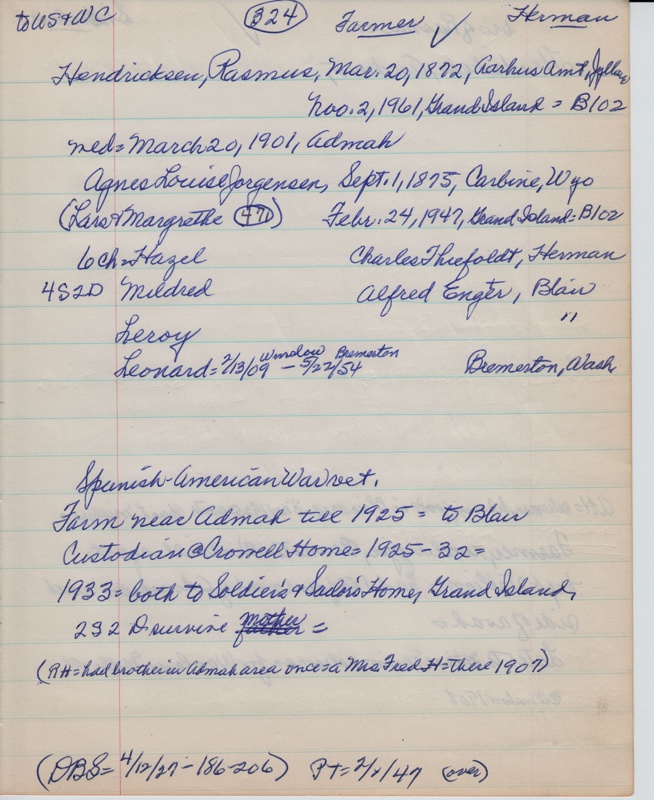 to US & WC 324 Farmer ✓ Herman
Hendricksen, Rasmus, Mar. 20, 1872, Aarhus Amt, Jylland
Nov. 2, 1961, Grand Island = B102
med = March 20, 1901, Admah
Agnes Louise Jorgensen, Sept. 1, 1875, Carbine, Wyo
(Lars & Margrethe 471) Febr. 24, 1947, Grand Island = B102
6 ch = Hazel Charles Thiefoldt, Herman
4S2D Mildred Alfred Enger, Blair
Leroy "
Leonard = 2/13/09 Winslow - 5/22/54 Bremerton Bremerton, Wash
Spanish-American War vet.
Farm near Admah till 1925 = to Blair
Custodian @ Crowell Home = 1925-32 =
1933 = both to Soldier's & Sailor's Home, Grand Island,
2S2D survive mother =
(RH = had brother in Admah area once = a Mrs Fred H = there 1907)
(DBS = 4/12/27 - 186-206) PT = 2/ /47 (over)